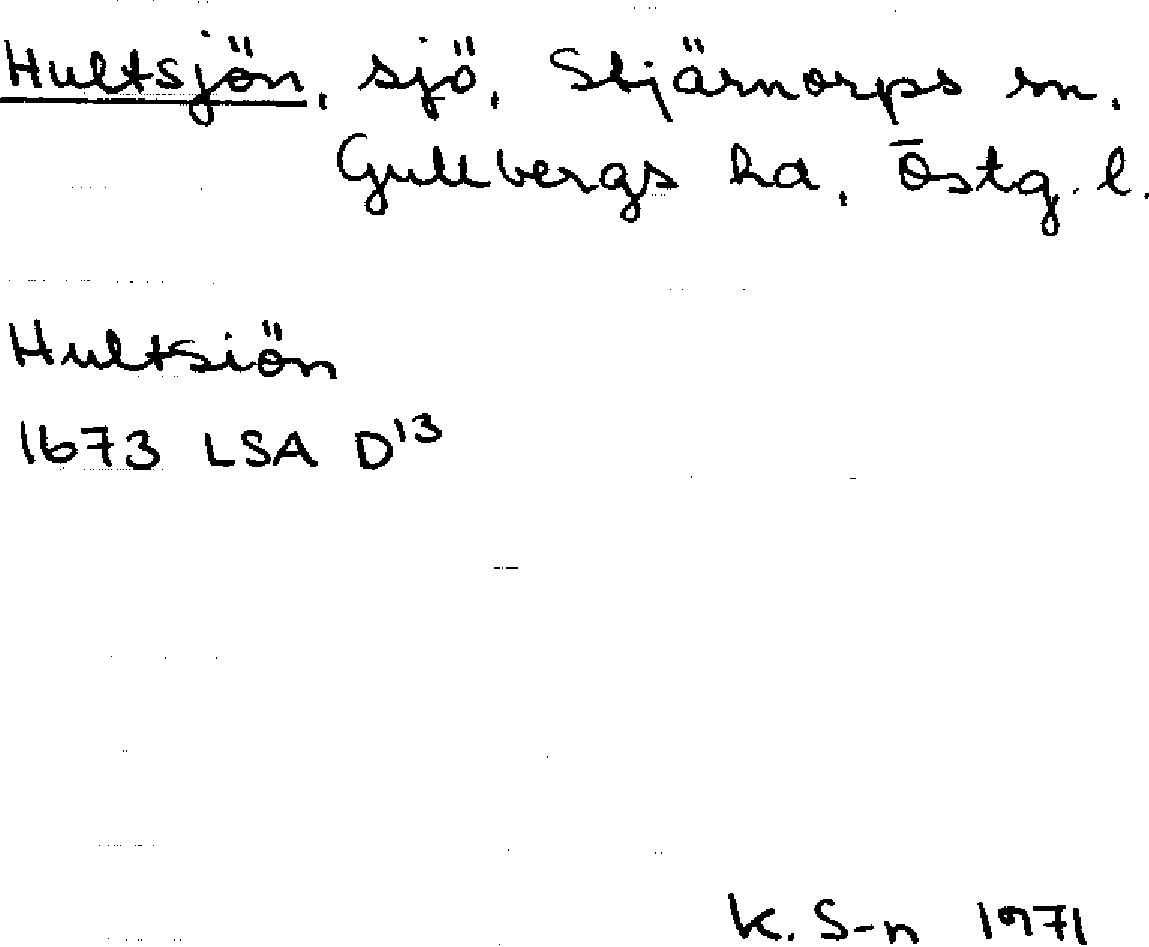 Hultsjön, sjö, Stjärnorps sn.
Gullbergs hd, Östg. l.
Hultsiön
1673 LSA D13
K. S-n 1971